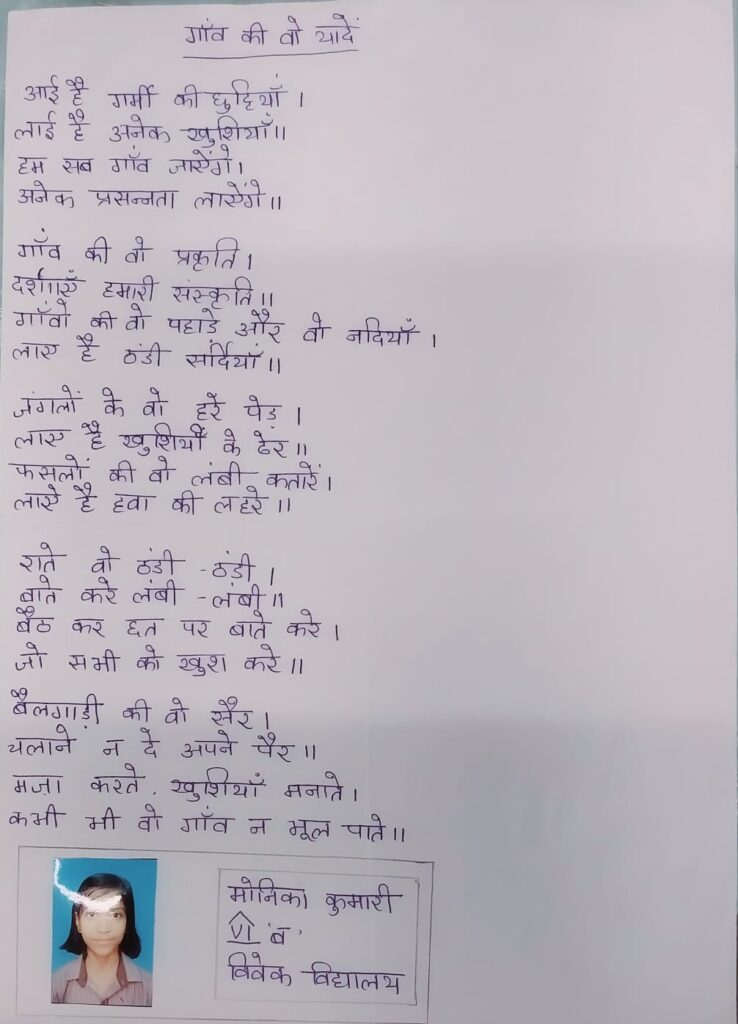 गाँव की वो यादें
आई है गर्मी की छुट्टियाँ ।
लाई है अनेक खुशियाँ॥
हम सब गाँव जाऐंगे।
अनेक प्रसन्नता लाऐंगे॥
गाँव की वो प्रकृति ।
दर्शाएँ हमारी संस्कृति॥
गाँवो की वो पहाडे और वो नदियाँ ।
लाए है ठंडी सर्दियाँ॥
जंगलों के वो हरे पेड़ ।
लाए है खुशियों के ढेर॥
फसलों की वो लंबी कतारें।
लाऐ है हवा की लहरे॥
राते वो ठंडी - ठंडी ।
बाते करे लंबी - लंबी॥
बैठ कर छत पर बाते करे ।
जो सभी को खुश करे॥
बैलगाड़ी की वो सैर ।
चलाने न दे अपने पैर॥
मज़ा करते, खुशियाँ मनाते।
कभी भी वो गाँव न भूल पाते॥
मोनिका कुमारी
VI 'ब'
विवेक विद्यालय